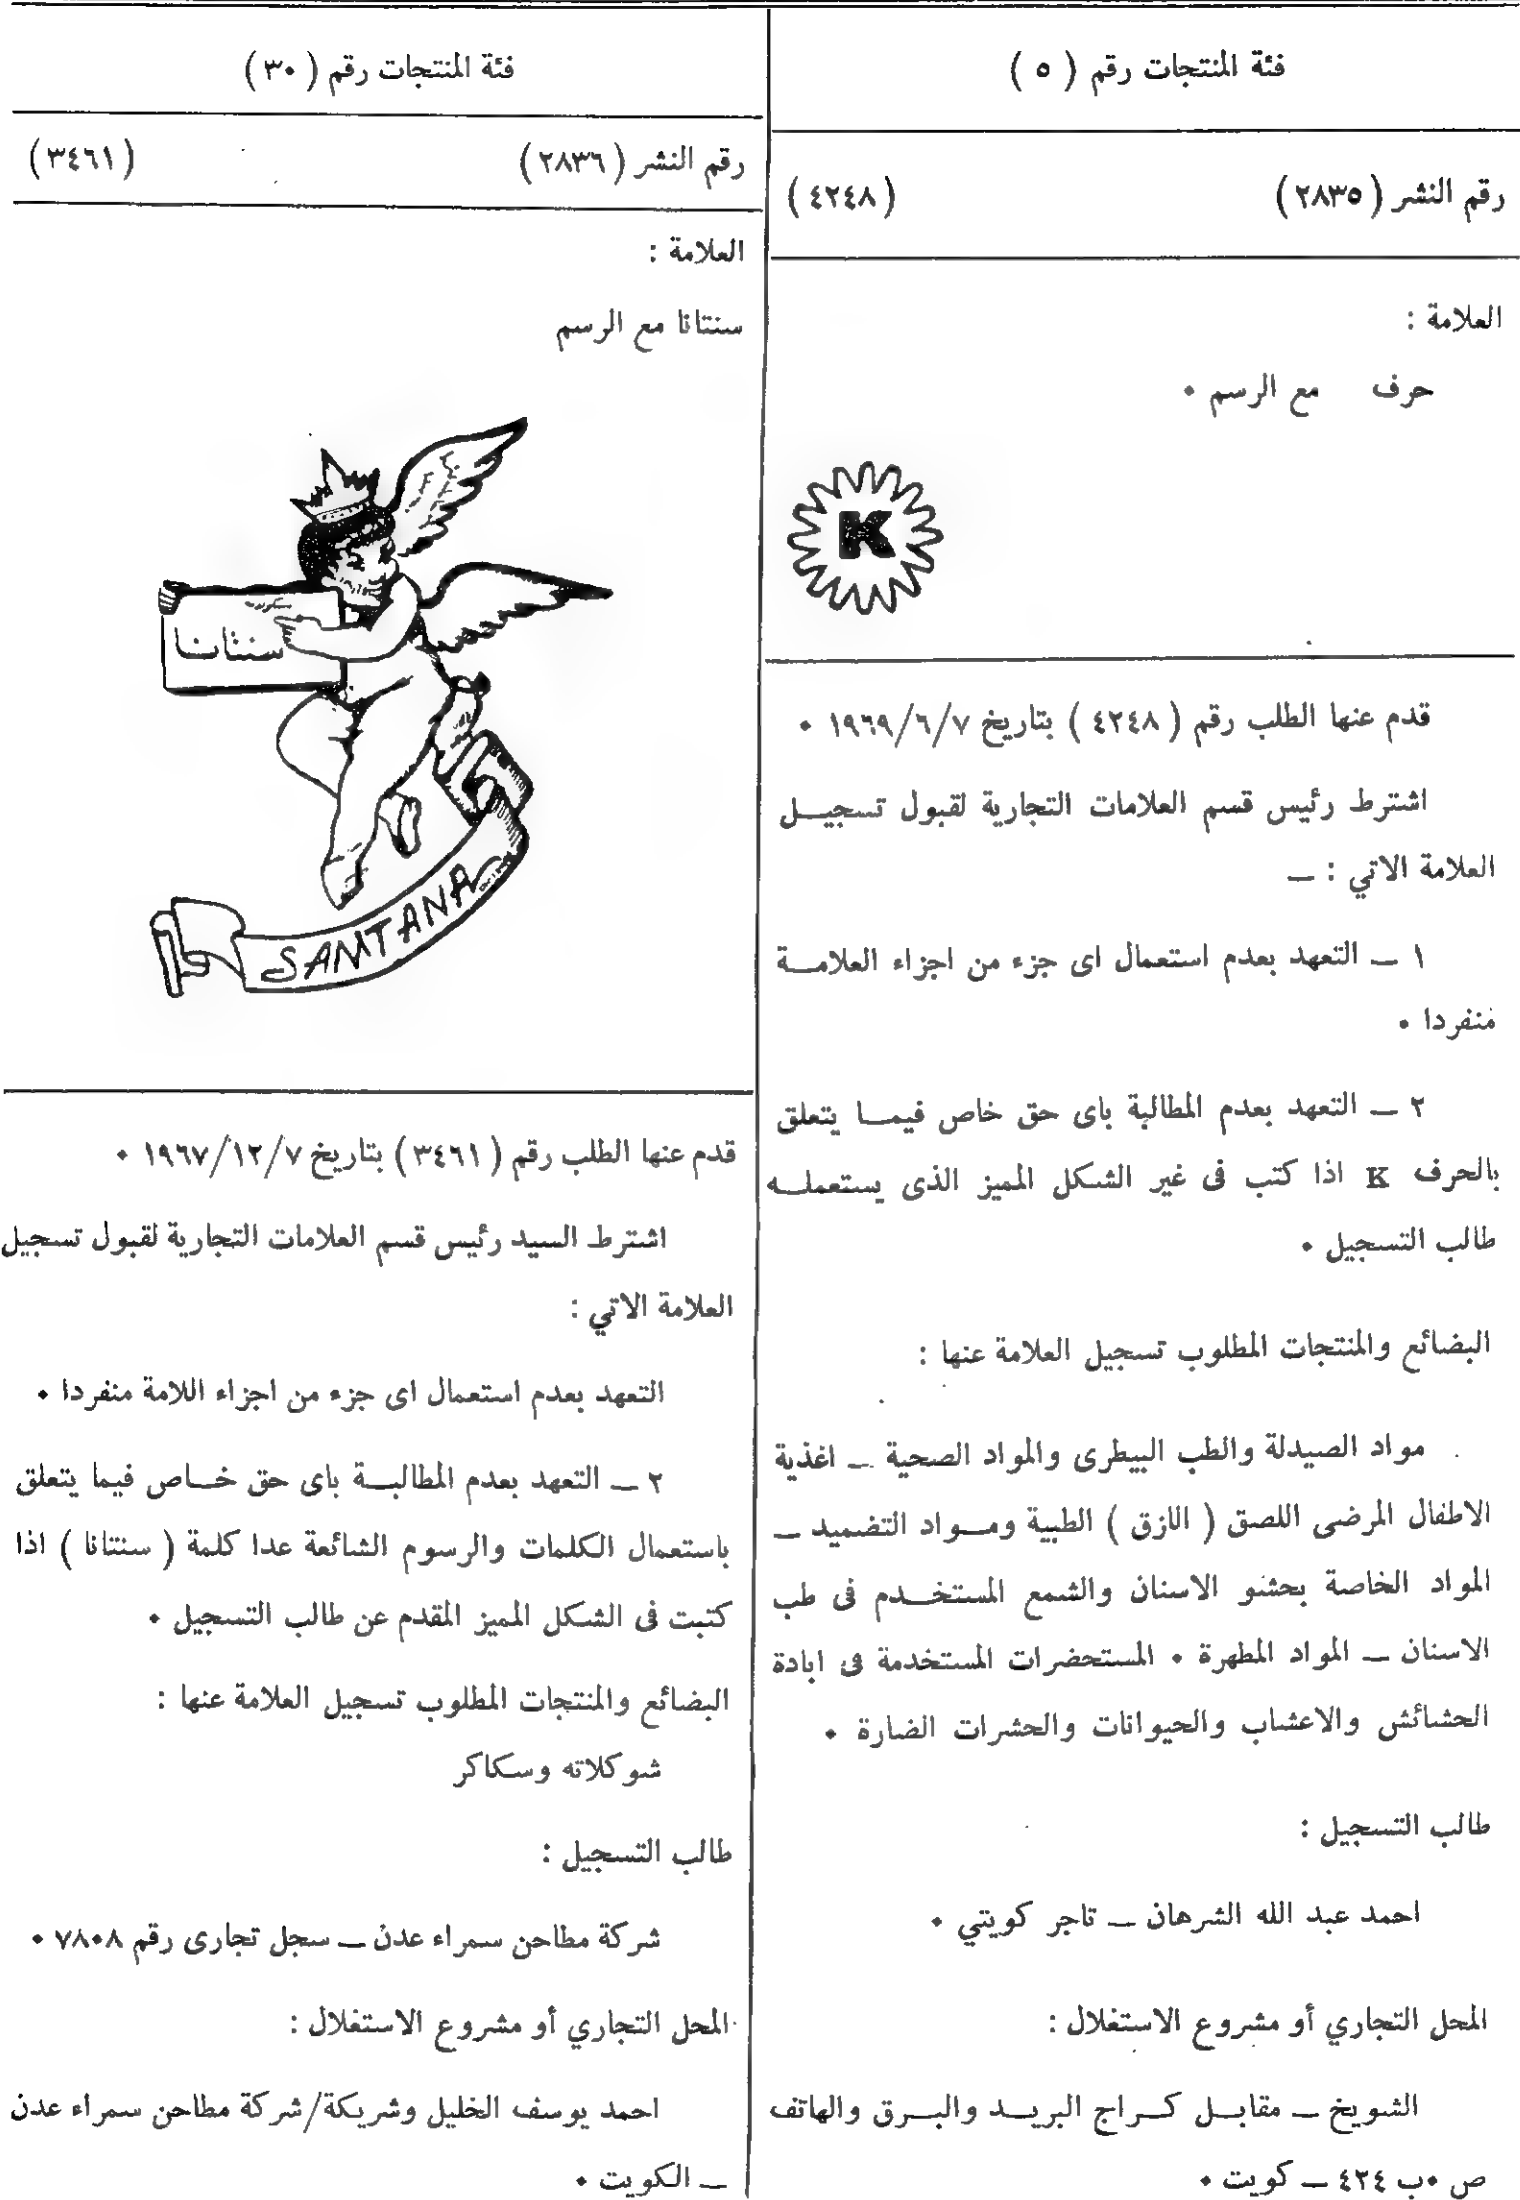 فئة المنتجات رقم ( ٥ )
رقم النشر ( ٢٨٣٥ )
( ٤٢٤٨ )
العلامة :
حرف مع الرسم ٠
K
قدم عنها الطلب رقم ( ٤٢٤٨ ) بتاريخ ١٩٦٩/٦/٧ ٠
اشترط رئيس قسم العلامات التجارية لقبول تسجيـــل
العلامة الاتي : ــ
١ ــ التعهد بعدم استعمال اى جزء من اجزاء العلامــة
منفردا ٠
٢ ــ التعهد بعدم المطالبة باى حق خاص فيمـــا يتعلق
بالحرف K اذا كتب فى غير الشكل المميز الذى يستعملــه
طالب التسجيل ٠
البضائع والمنتجات المطلوب تسجيل العلامة عنها :
مواد الصيدلة والطب البيطرى والمواد الصحية ــ اغذية
الاطفال المرضى اللصق ( الازق ) الطبية ومــواد التضميد ــ
المواد الخاصة بحشو الاسنان والشمع المستخــدم فى طب
الاسنان ــ المواد المطهرة ٠ المستحضرات المستخدمة فى ابادة
الحشائش والاعشاب والحيوانات والحشرات الضارة ٠
طالب التسجيل :
احمد عبد الله الشرهان ــ تاجر كويتي ٠
المحل التجاري أو مشروع الاستغلال :
الشويخ ــ مقابــل كــراج البريــد والبــرق والهاتف
ص ٠ب ٤٢٤ ــ كويت ٠
فئة المنتجات رقم ( ٣٠ )
رقم النشر ( ٢٨٣٦ )
( ٣٤٦١ )
العلامة :
سنتانا مع الرسم
سنتانا
SANTANA
قدم عنها الطلب رقم ( ٣٤٦١ ) بتاريخ ١٩٦٧/١٢/٧ ٠
اشترط السيد رئيس قسم العلامات التجارية لقبول تسجيل
العلامة الاتي :
التعهد بعدم استعمال اى جزء من اجزاء اللامة منفردا ٠
٢ ــ التعهد بعدم المطالبــة باى حق خــاص فيما يتعلق
باستعمال الكلمات والرسوم الشائعة عدا كلمة ( سنتانا ) اذا
كتبت فى الشكل المميز المقدم عن طالب التسجيل ٠
البضائع والمنتجات المطلوب تسجيل العلامة عنها :
شوكلاته وسكاكر
طالب التسجيل :
شركة مطاحن سمراء عدن ــ سجل تجارى رقم ٧٨٠٨ ٠
المحل التجاري أو مشروع الاستغلال :
احمد يوسف الخليل وشريكة/شركة مطاحن سمراء عدن
ــ الكويت ٠